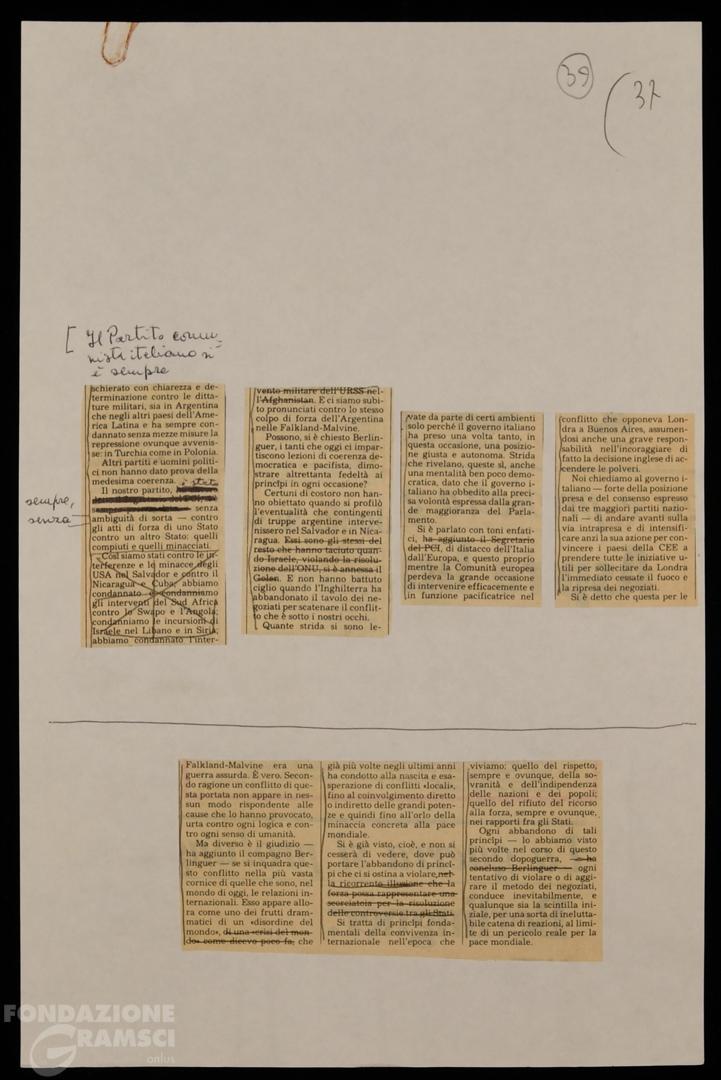 39
37
[ Il Partito comu-
nista italiano si
è sempre
schierato con chiarezza e de-
terminazione contro le ditta-
ture militari, sia in Argentina
che negli altri paesi dell'Ame-
rica Latina e ha sempre con-
dannato senza mezze misure la
repressione ovunque avvenis-
se: in Turchia come in Polonia.
Altri partiti e uomini politi-
ci non hanno dato prova della
medesima coerenza.
è stato
Il nostro partito,
sempre,
senza
senza
ambiguità di sorta — contro
gli atti di forza di uno Stato
contro un altro Stato: quelli
compiuti e quelli minacciati.
Così siamo stati contro le in-
terferenze e le minacce degli
USA nel Salvador e contro il
Nicaragua e Cuba; abbiamo
condannato e condanniamo
gli interventi del Sud Africa
contro lo Swapo e l'Angola;
condanniamo le incursioni di
Israele nel Libano e in Siria;
abbiamo condannato l'inter-
vento militare dell'URSS nel-
l'Afghanistan. E ci siamo subi-
to pronunciati contro lo stesso
colpo di forza dell'Argentina
nelle Falkland-Malvine.
Possono, si è chiesto Berlin-
guer, i tanti che oggi ci impar-
tiscono lezioni di coerenza de-
mocratica e pacifista, dimo-
strare altrettanta fedeltà ai
princìpi in ogni occasione?
Certuni di costoro non han-
no obiettato quando si profilò
l'eventualità che contingenti
di truppe argentine interve-
nissero nel Salvador e in Nica-
ragua. Essi sono gli stessi del
resto che hanno taciuto quan-
do Israele, violando la risolu-
zione dell'ONU, si è annessa il
Golan. E non hanno battuto
ciglio quando l'Inghilterra ha
abbandonato il tavolo dei ne-
goziati per scatenare il conflit-
to che è sotto i nostri occhi.
Quante strida si sono le-
vate da parte di certi ambienti
solo perché il governo italiano
ha preso una volta tanto, in
questa occasione, una posizio-
ne giusta e autonoma. Strida
che rivelano, queste sì, anche
una mentalità ben poco demo-
cratica, dato che il governo i-
taliano ha obbedito alla preci-
sa volontà espressa dalla gran-
de maggioranza del Parla-
mento.
Si è parlato con toni enfati-
ci, ha aggiunto il Segretario
del PCI, di distacco dell'Italia
dall'Europa, e questo proprio
mentre la Comunità europea
perdeva la grande occasione
di intervenire efficacemente e
in funzione pacificatrice nel
conflitto che opponeva Lon-
dra a Buenos Aires, assumen-
dosi anche una grave respon-
sabilità nell'incoraggiare di
fatto la decisione inglese di ac-
cendere le polveri.
Noi chiediamo al governo i-
taliano — forte della posizione
presa e del consenso espresso
dai tre maggiori partiti nazio-
nali — di andare avanti sulla
via intrapresa e di intensifi-
care anzi la sua azione per con-
vincere i paesi della CEE a
prendere tutte le iniziative u-
tili per sollecitare da Londra
l'immediato cessate il fuoco e
la ripresa dei negoziati.
Si è detto che questa per le
Falkland-Malvine era una
guerra assurda. È vero. Secon-
do ragione un conflitto di que-
sta portata non appare in nes-
sun modo rispondente alle
cause che lo hanno provocato,
urta contro ogni logica e con-
tro ogni senso di umanità.
Ma diverso è il giudizio —
ha aggiunto il compagno Ber-
linguer — se si inquadra que-
sto conflitto nella più vasta
cornice di quelle che sono, nel
mondo di oggi, le relazioni in-
ternazionali. Esso appare allo-
ra come uno dei frutti dram-
matici di un «disordine del
mondo», di una «crisi del mon-
do» come dicevo poco fa, che
già più volte negli ultimi anni
ha condotto alla nascita e esa-
sperazione di conflitti «locali»,
fino al coinvolgimento diretto
o indiretto delle grandi poten-
ze e quindi fino all'orlo della
minaccia concreta alla pace
mondiale.
Si è già visto, cioè, e non si
cesserà di vedere, dove può
portare l'abbandono di princì-
pi che ci si ostina a violare, nel-
la ricorrente illusione che la
forza possa rappresentare una
scorciatoia per la risoluzione
delle controversie tra gli Stati.
Si tratta di princìpi fonda-
mentali della convivenza in-
ternazionale nell'epoca che
viviamo: quello del rispetto,
sempre e ovunque, della so-
vranità e dell'indipendenza
delle nazioni e dei popoli;
quello del rifiuto del ricorso
alla forza, sempre e ovunque,
nei rapporti fra gli Stati.
Ogni abbandono di tali
princìpi — lo abbiamo visto
più volte nel corso di questo
secondo dopoguerra, — ha
concluso Berlinguer — ogni
tentativo di violare o di aggi-
rare il metodo dei negoziati,
conduce inevitabilmente, e
qualunque sia la scintilla ini-
ziale, per una sorta di inelutta-
bile catena di reazioni, al limi-
te di un pericolo reale per la
pace mondiale.
FONDAZIONE
GRAMSCI
onlus